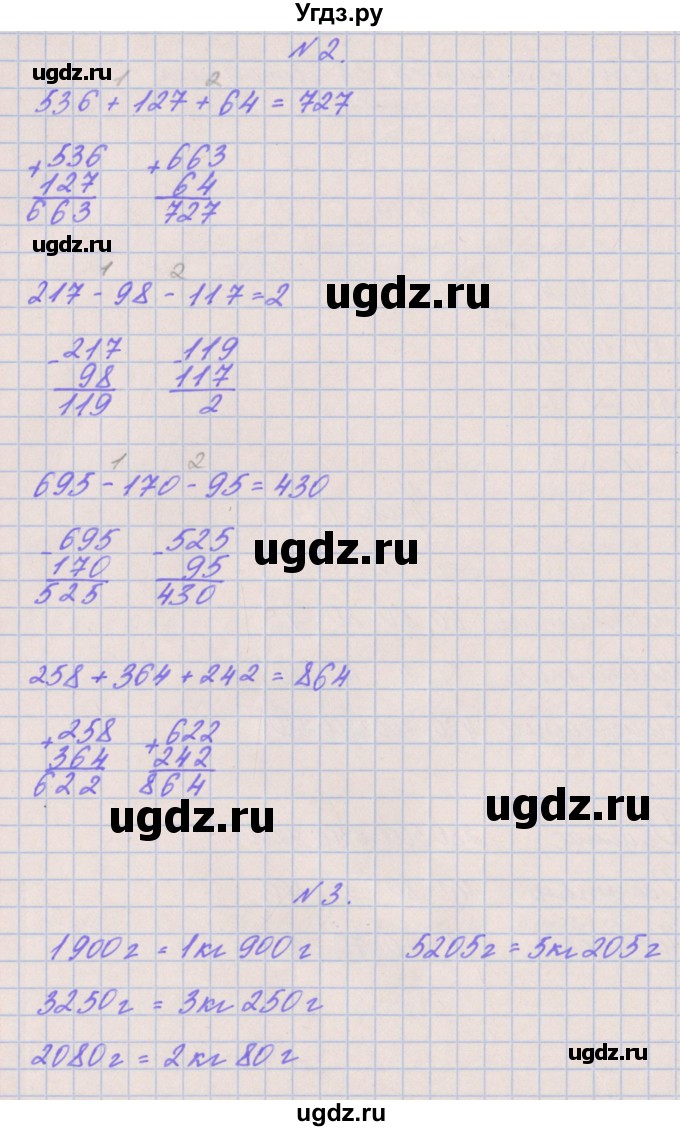 Угдз.ру
N 2.
ugdz.ru
1 2
536 + 127 + 64 = 727
+536 +663
127 64
663 727
ugdz.ru
1 2
217 - 98 - 117 = 2
ugdz.ru
-217 -119
98 117
119 2
1 2
695 - 170 - 95 = 430
-695 -525
ugdz.ru
170 95
525 430
258 + 364 + 242 = 864
+258 +622
364 242
622 864
ugdz.ru
ugdz.ru
N 3.
1900 г = 1 кг 900 г 5205 г = 5 кг 205 г
3250 г = 3 кг 250 г
2080 г = 2 кг 80 г
ugdz.ru
ugdz.ru